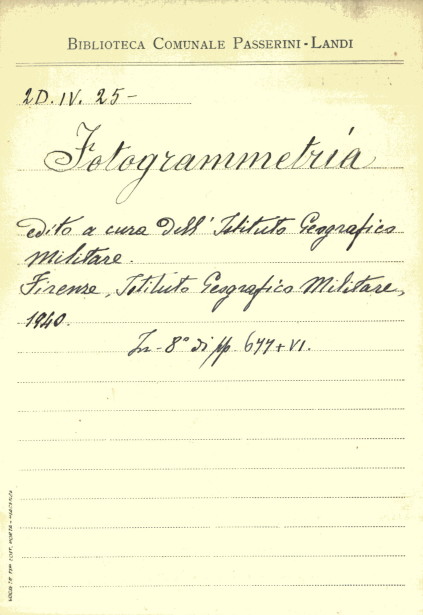 BIBLIOTECA COMUNALE PASSERINI-LANDI
2D. IV. 25-
Fotogrammetria
edito a cura dell' Istituto Geografico
Militare.
Firenze, Istituto Geografico Militare,
1940.
In-8° di pp. 677+VI.